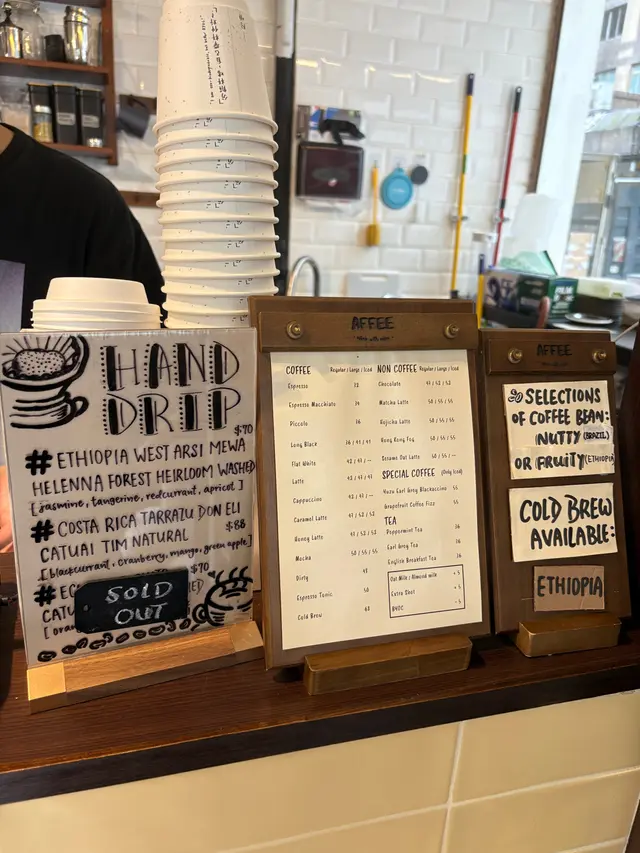 HAND
DRIP
$70
# ETHIOPIA WEST ARSI MEWA
HELENNA FOREST HEIRLOOM WASHED
[jasmine, tangerine, redcurrant, apricot]
# COSTA RICA TARRAZU DON ELI
CATUAI TIM NATURAL $88
[blackcurrant, cranberry, mango, green apple]
$70
#
CATU
SOLD
OUT
AFFEE
COFFEE Regular / Large / Iced
Espresso 32
Espresso Macchiato 34
Piccolo 36
Long Black 36 / 41 / 41
Flat White
Latte
Cappuccino
Caramel Latte
Honey Latte
Mocha 50 / 55 / 55
Dirty
Espresso Tonic 50
Cold Brew
NON COFFEE Regular / Large / Iced
Chocolate
Matcha Latte 50 / 55 / 55
Hojicha Latte 50 / 55 / 55
Hong Kong Fog 50 / 55 / 55
Sesame Oat Latte 50 / 55 / --
SPECIAL COFFEE (Only Iced)
Yuzu Earl Grey Blackccino 55
Grapefruit Coffee Fizz 55
TEA
Peppermint Tea 36
Earl Grey Tea 36
English Breakfast Tea 36
Oat Milk / Almond milk + 5
Extra Shot
BYOC
AFFEE
SELECTIONS
OF COFFEE BEAN:
NUTTY (BRAZIL)
OR FRUITY (ETHIOPIA
COLD BREW
AVAILABLE:
ETHIOPIA